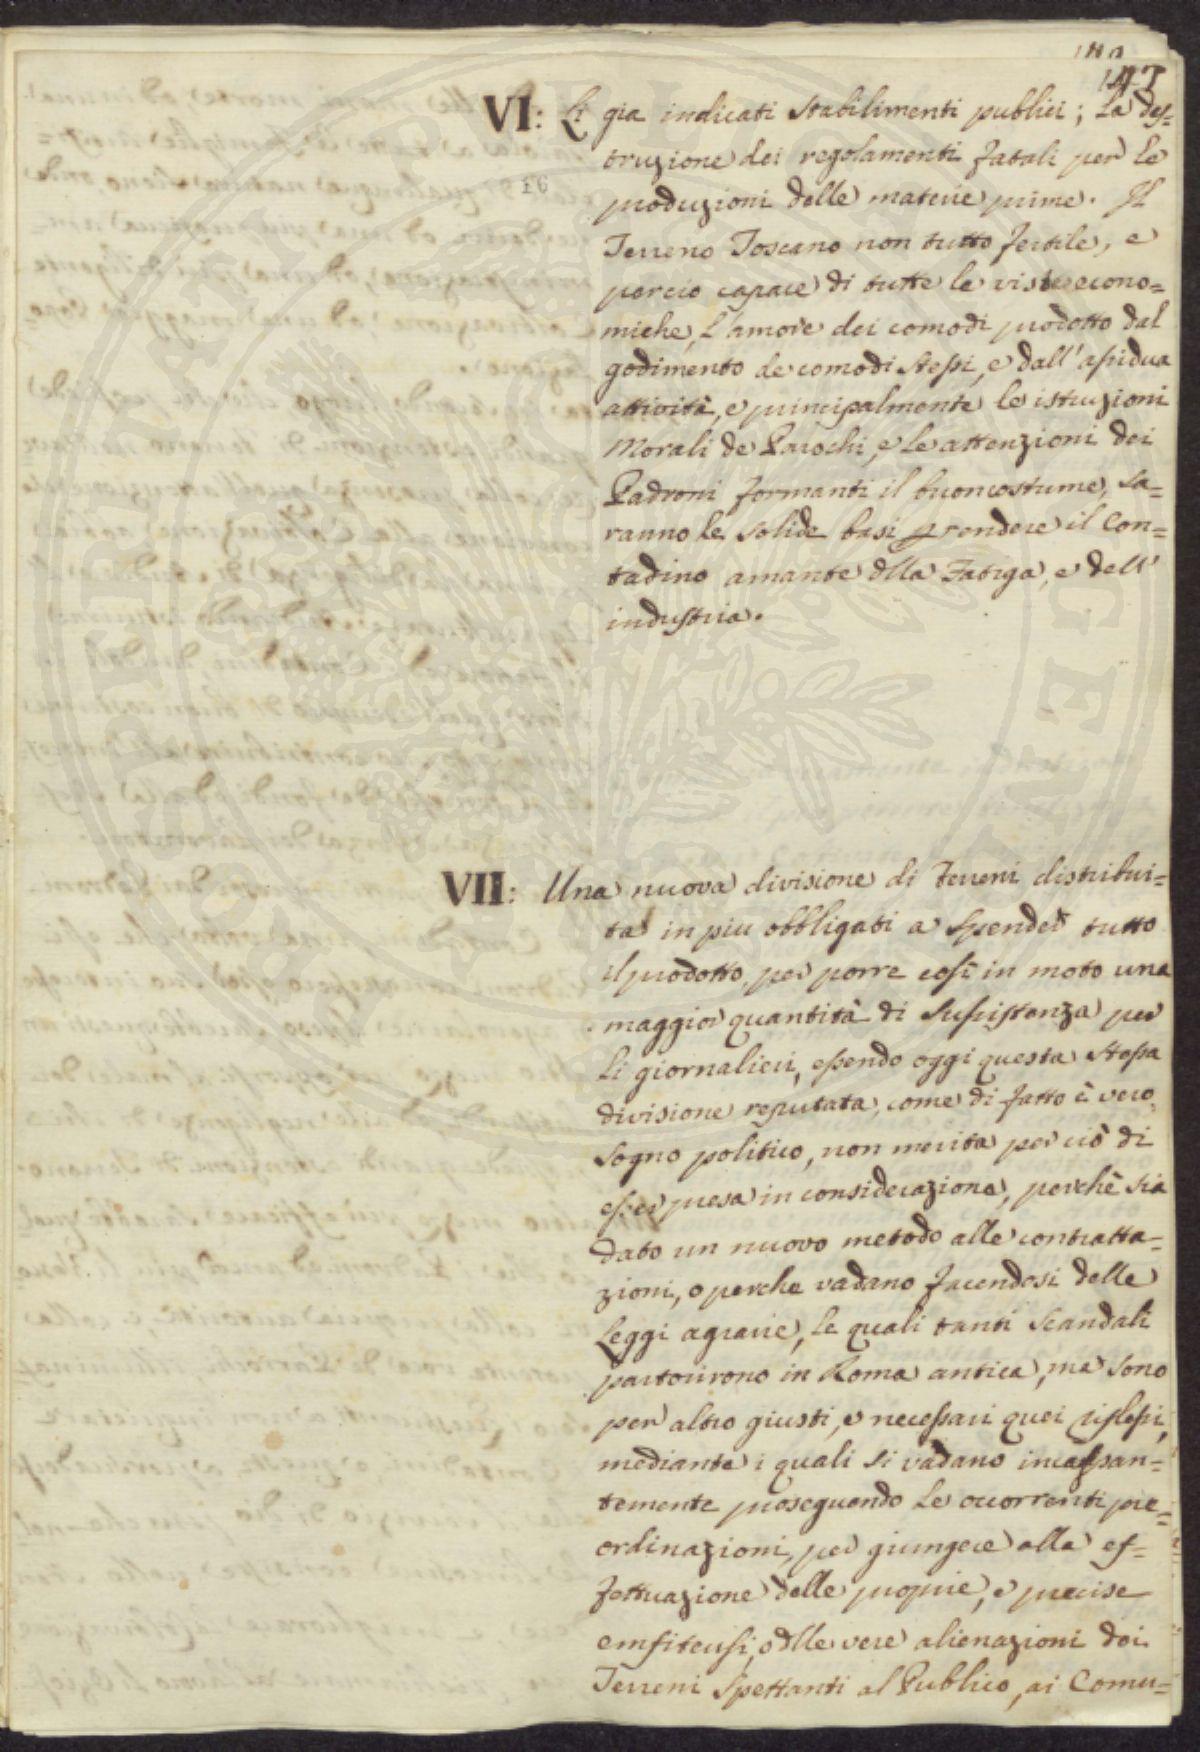 143
VI: Li gia indicati stabilimenti publici; La des-
truzione dei regolamenti fatali per le
produzioni delle materie prime. Il
Terreno Toscano non tutto fertile, e
perciò capace di tutte le viste econo=
miche, L'amore dei comodi prodotto dal
godimento de comodi stessi, e dall'assidua
attività, e principalmente le istruzioni
Morali de Parochi, e le attenzioni dei
Padroni formanti il buon costume, sa=
ranno le solide basi p rendere il Con=
tadino amante dlla Fatiga, e dell'
industria.
VII: Una nuova divisione di Terreni distribui=
ta in piu obbligati a spender tutto
il prodotto, per porre così in moto una
maggior quantità di sussistenza per
li giornalieri, essendo oggi questa stessa
divisione reputata, come di fatto è vero,
sogno politico, non merita per ciò di
esser presa in considerazione, perchè sia
dato un nuovo metodo alle contratta=
zioni, o perche vadano facendosi delle
Leggi agrarie, le quali tanti scandali
partorirono in Roma antica, ma sono
per altro giusti, e necessari quei riflessi,
mediante i quali si vadano incessan=
temente proseguendo le occorrenti pre=
ordinazioni, per giungere alla ef=
fettuazione delle proprie, e precise
emfiteusi, o dlle vere alienazioni dei
Terreni spettanti al Publico, ai Comu=
16
PROSPERITATI PUBLICAE AUGENDAE